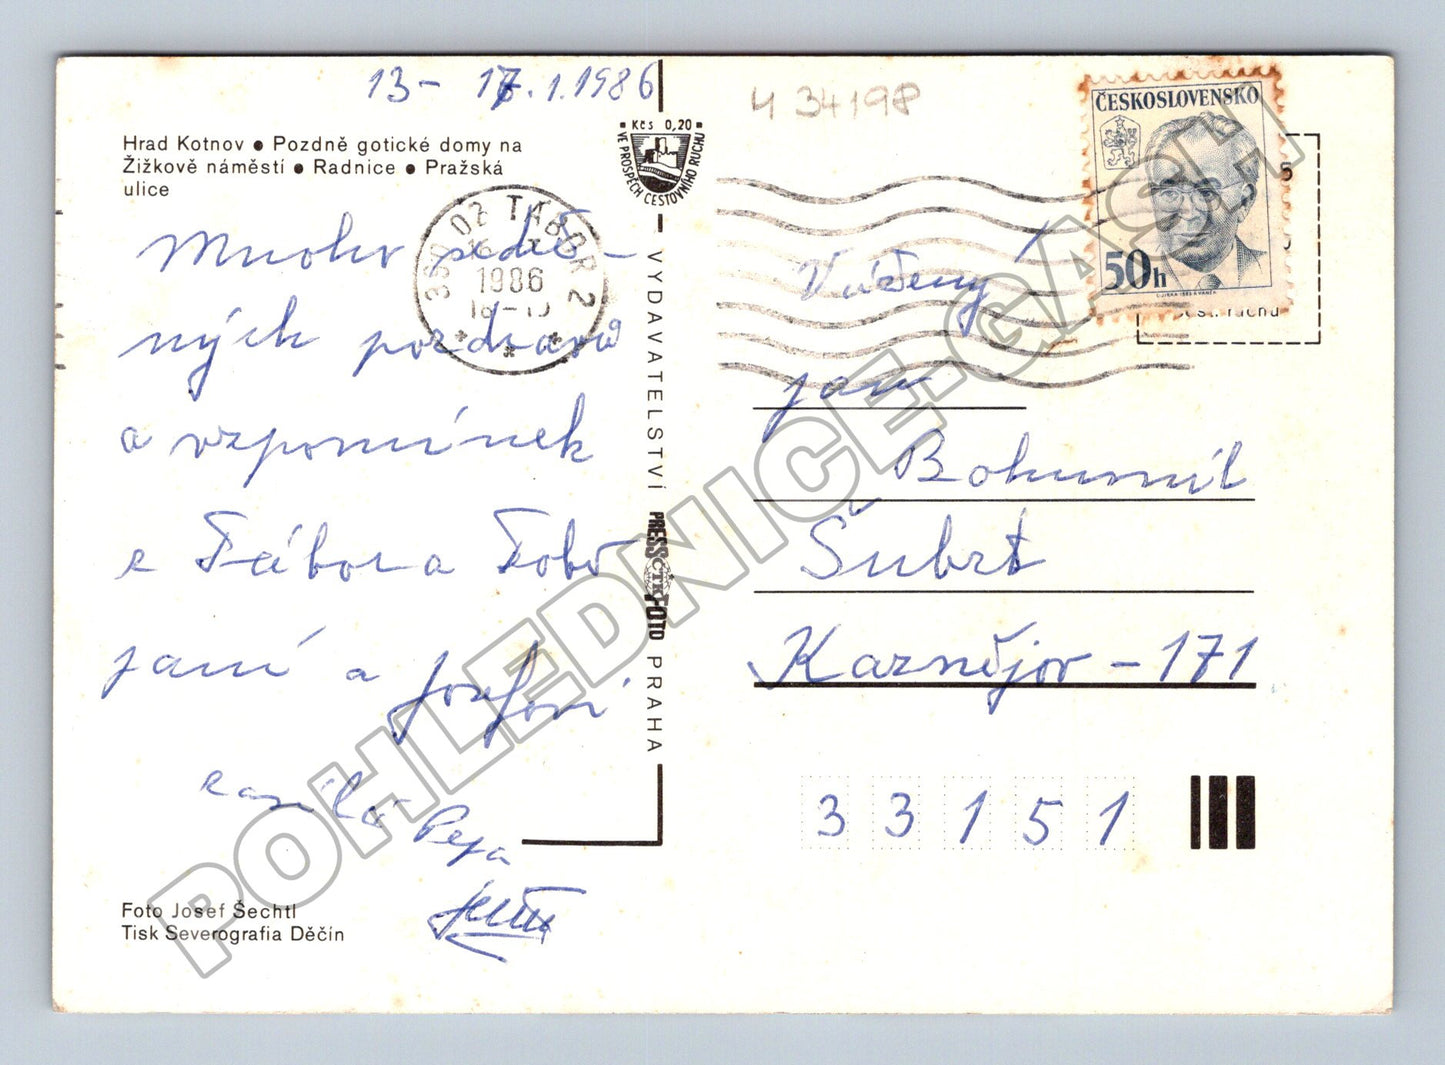 13- 17.1.1986
4 34198
Hrad Kotnov ● Pozdně gotické domy na
Žižkově náměstí ● Radnice ● Pražská
ulice
Kčs 0,20
VE PROSPĚCH CESTOVNÍHO RUCHU
ČESKOSLOVENSKO
50h
390 02 TÁBOR 2
1986
Mnoho srdeč-
ných pozdravů
a vzpomínek
z Tábora Tobě
paní a Josefovi
zasílá Pepa
Vážený
pan
Bohumil
Šubrt
Kaznějov - 171
33151
VYDAVATELSTVÍ PRESSFOTO PRAHA
ČTK
cest. ruchu
Foto Josef Šechtl
Tisk Severografia Děčín
POHLEDNICE-CASH